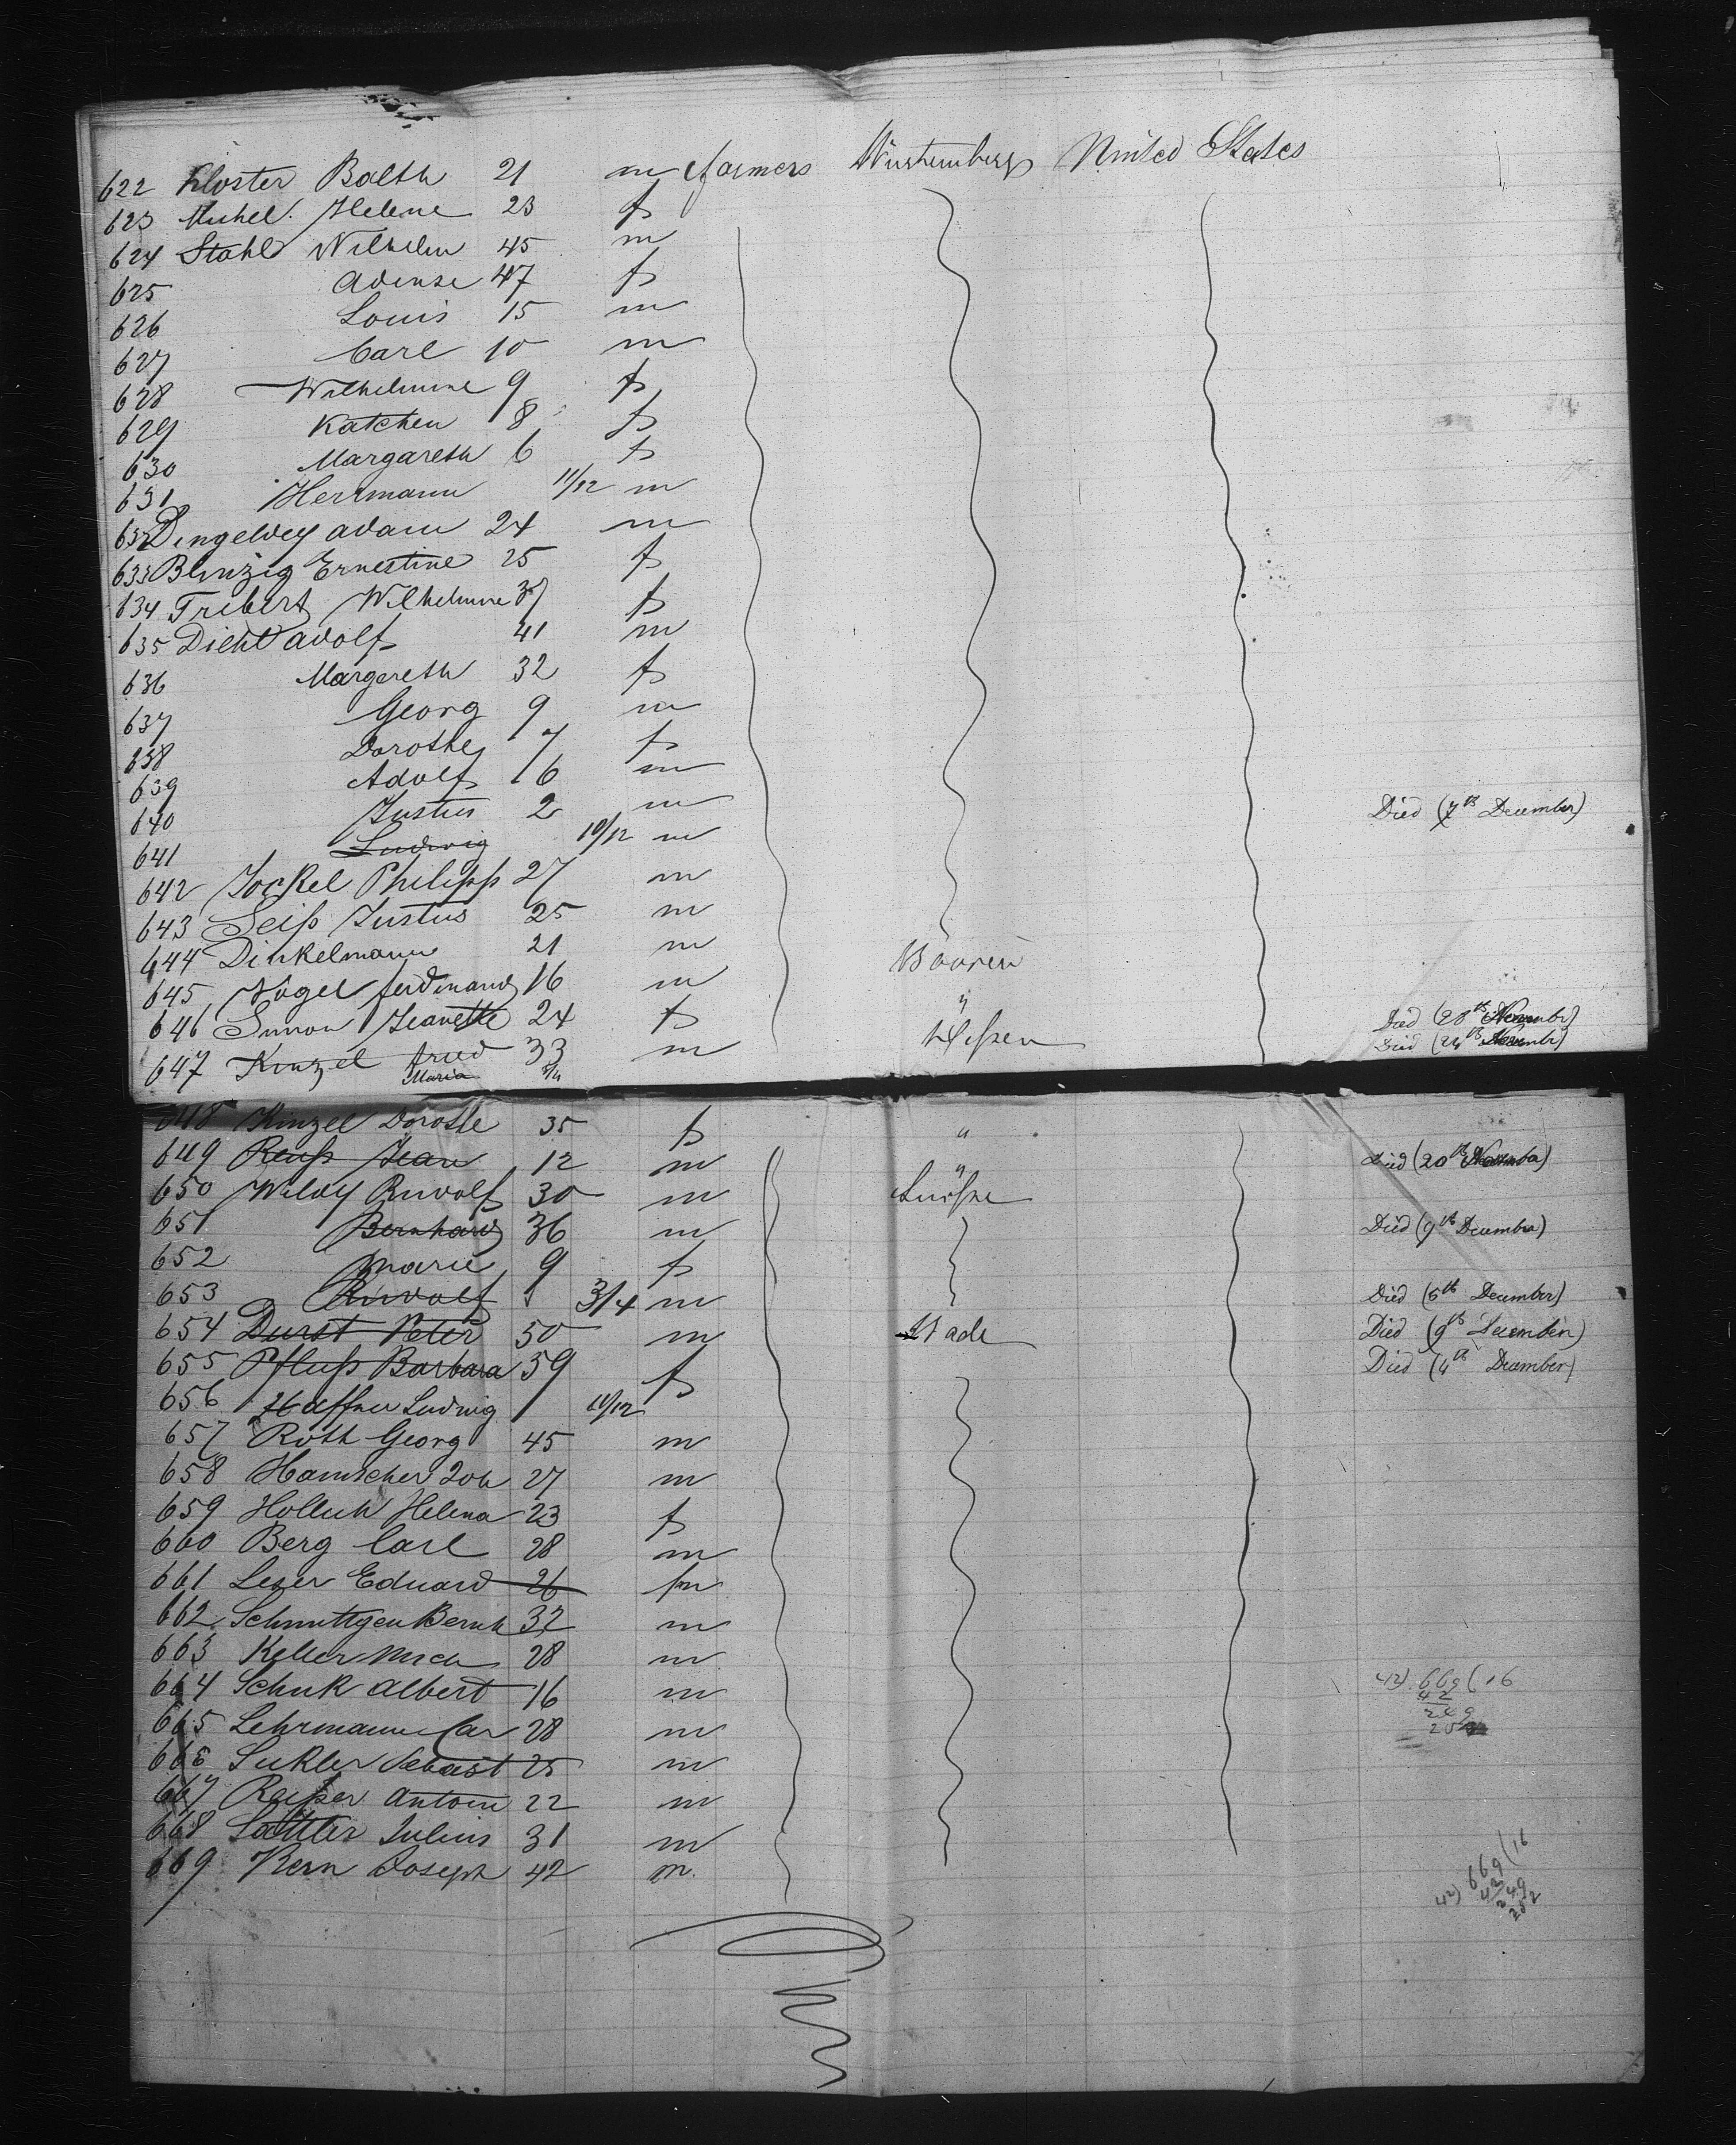 622 Kloster Balth 21 m farmers Würtemberg United States
623 Michel Helene 23 f
624 Stahl Wilhelm 45 m
625 47 f
626 Louis 15 m
627 Carl 10 m
628 Wilhelmine 9 f
629 Katchen 8 f
630 Margareth 6 f
631 Herrmann 11/12 m
632 Dingeldey Adam 24 m
633 Ernestine 25 f
634 Tribert Wilhelmine f
635 Diehl Adolf 41 m
636 Margareth 32 f
637 Georg 9 m
638 Dorothe 7 f
639 Adolf 6 m
640 Justus 2 m Died (7th December)
641 Ludwig 10/12 m
642 Jockel Philipp 27 m
643 Seiß Justus 25 m
644 Dinkelmann 21 m
645 Vogel ferdinand 16 m "
646 Simon Jeanette 24 f Heßen Died (20th Novembr)
647 Kinzel fried 33 m Died (24th
Maria
648 Kinzel Dorothe 35 f "
649 Reuß Jean 12 m " Died (20th
650 Wildy Rudolf 30 m
651 Bernhard 36 m Died (9th December)
652 Marie 9 f
653 Rudolf 3/4 m Died (5th December)
654 Durst Peter 50 m Died (9th December)
655 Pfluß Barbara 59 f Died (4th December)
656 Haffner Ludwig 11/12
657 Roth Georg 45 m
658 Hamscher Joh 27 m
659 Helena 23 f
660 Berg Carl 28 m
661 Leser Eduard 26 m
662 Schmittgen Bernh m
663 Keller Mich 28 m
664 Schuk Albert 16 m 42) 669 (16
42
249
665 Lehrmann Car 28 m
666 Sebast 25 m
667 Antoin 22 m
668 Sattler Julius 31 m
669 Kern Joseph 42 m. 42) 669 (16
42
249
252